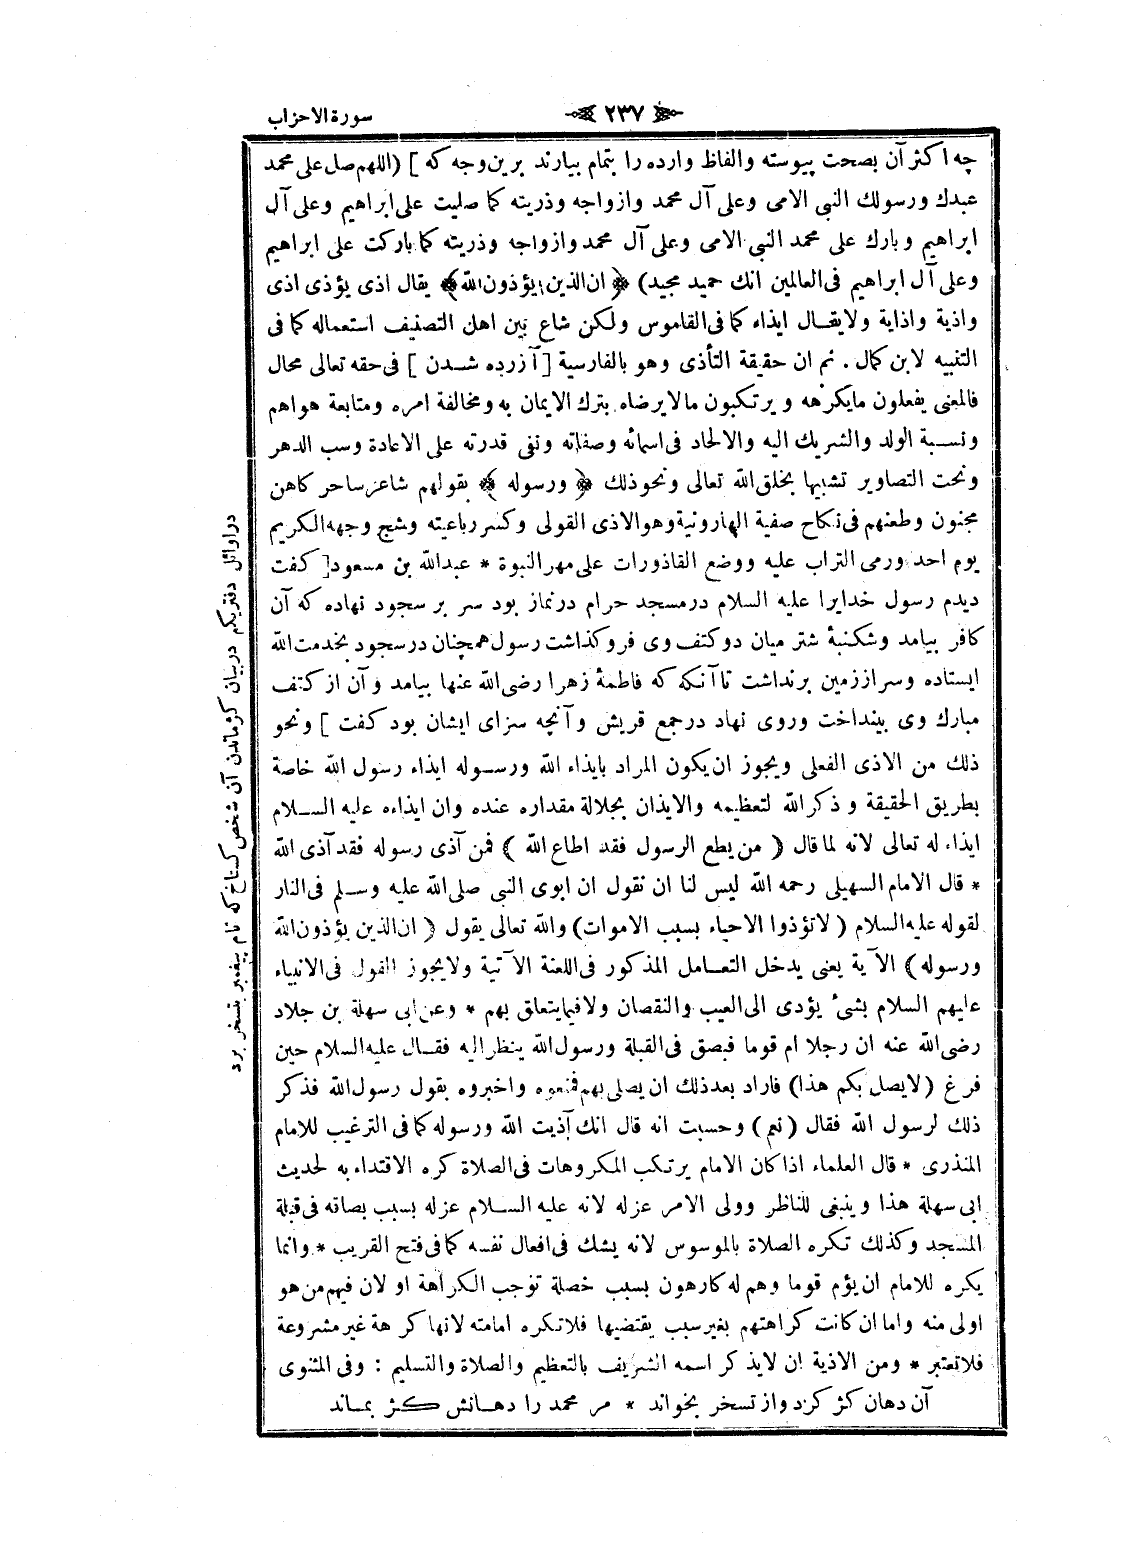 سورة الاحزاب
٢٣٧
چه اكثر آن بصحت پيوسته والفاظ وارده را بتمام بيارند برين وجه كه ] (اللهم صل على محمد
عبدك ورسولك النبى الامى وعلى آل محمد وازواجه وذريته كما صليت على ابراهيم وعلى آل
ابراهيم وبارك على محمد النبى الامى وعلى آل محمد وازواجه وذريته كما باركت على ابراهيم
وعلى آل ابراهيم فى العالمين انك حميد مجيد) ﴿ ان الذين يؤذون الله ﴾ يقال اذى يؤذى اذى
واذية واذاية ولايقال ايذاء كما فى القاموس ولكن شاع بين اهل التصنيف استعماله كما فى
التنبيه لابن كمال . ثم ان حقيقة التأذى وهو بالفارسية [ آزرده شدن ] فى حقه تعالى محال
فالمعنى يفعلون مايكرهه ويرتكبون مالايرضاه بترك الايمان به ومخالفة امره ومتابعة هواهم
ونسبة الولد والشريك اليه والالحاد فى اسمائه وصفاته ونفى قدرته على الاعادة وسب الدهر
ونحت التصاوير تشبيها بخلق الله تعالى ونحو ذلك ﴿ ورسوله ﴾ بقولهم شاعر ساحر كاهن
مجنون وطعنهم فى نكاح صفية الهارونية وهو الاذى القولى وكسر رباعيته وشج وجهه الكريم
يوم احد ورمى التراب عليه ووضع القاذورات على مهر النبوة * عبدالله بن مسعود [ كفت
ديدم رسول خدايرا عليه السلام در مسجد حرام در نماز بود سر بر سجود نهاده كه آن
كافر بيامد وشكنبۀ شتر ميان دو كتف وى فرو كذاشت رسول همچنان در سجود بخدمت الله
ايستاده وسر از زمين برنداشت تا آنكه كه فاطمۀ زهرا رضى الله عنها بيامد وآن از كتف
مبارك وى بينداخت وروى نهاد در جمع قريش وآنچه سزاى ايشان بود كفت ] ونحو
ذلك من الاذى الفعلى ويجوز ان يكون المراد بايذاء الله ورسوله ايذاء رسول الله خاصة
بطريق الحقيقة وذكر الله لتعظيمه والايذان بجلالة مقداره عنده وان ايذاءه عليه السلام
ايذاء له تعالى لانه لما قال ( من يطع الرسول فقد اطاع الله ) فمن آذى رسوله فقد آذى الله
* قال الامام السهيلى رحمه الله ليس لنا ان نقول ان ابوى النبى صلى الله عليه وسلم فى النار
لقوله عليه السلام ( لاتؤذوا الاحياء بسبب الاموات) والله تعالى يقول ( ان الذين يؤذون الله
ورسوله ) الآية يعنى يدخل التعامل المذكور فى اللعنة الآتية ولايجوز القول فى الانبياء
عليهم السلام بشئ يؤدى الى العيب والنقصان ولا فيما يتعلق بهم * وعن ابى سهلة بن جلاد
رضى الله عنه ان رجلا ام قوما فبصق فى القبلة ورسول الله ينظر اليه فقال عليه السلام حين
فرغ (لايصل بكم هذا) فاراد بعد ذلك ان يصلى بهم فمنعوه واخبروه بقول رسول الله فذكر
ذلك لرسول الله فقال (نعم) وحسبت انه قال انك آذيت الله ورسوله كما فى الترغيب للامام
المنذرى * قال العلماء اذا كان الامام يرتكب المكروهات فى الصلاة كره الاقتداء به لحديث
ابى سهلة هذا وينبغى للناظر وولى الامر عزله لانه عليه السلام عزله بسبب بصاقه فى قبلة
المسجد وكذلك تكره الصلاة بالموسوس لانه يشك فى افعال نفسه كما فى فتح القريب * وانما
يكره للامام ان يؤم قوما وهم له كارهون بسبب خصلة توجب الكراهة او لان فيهم من هو
اولى منه واما ان كانت كراهتهم بغير سبب يقتضيها فلاتكره امامته لانها كرهة غير مشروعة
فلاتعتبر * ومن الاذية ان لايذكر اسمه الشريف بالتعظيم والصلاة والتسليم : وفى المثنوى
آن دهان كژ كرد واز تسخر بخواند * مر محمد را دهانش كژ بماند
در اوائل دفتر يكم در بيان كژ ماندن آن شخص كستاخ كه نام پيغمبر بتسخر برد